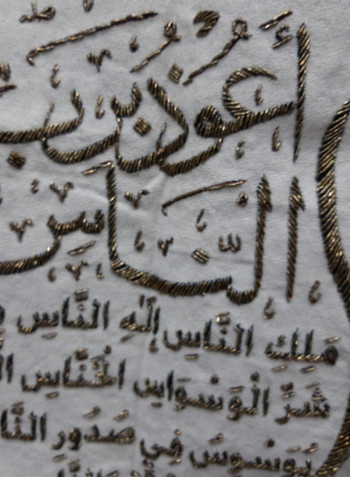 أَعُوذُ بِرَبِّ
النَّاسِ
مَلِكِ النَّاسِ إِلَٰهِ النَّاسِ
شَرِّ الْوَسْوَاسِ الْخَنَّاسِ
يُوَسْوِسُ فِي صُدُورِ